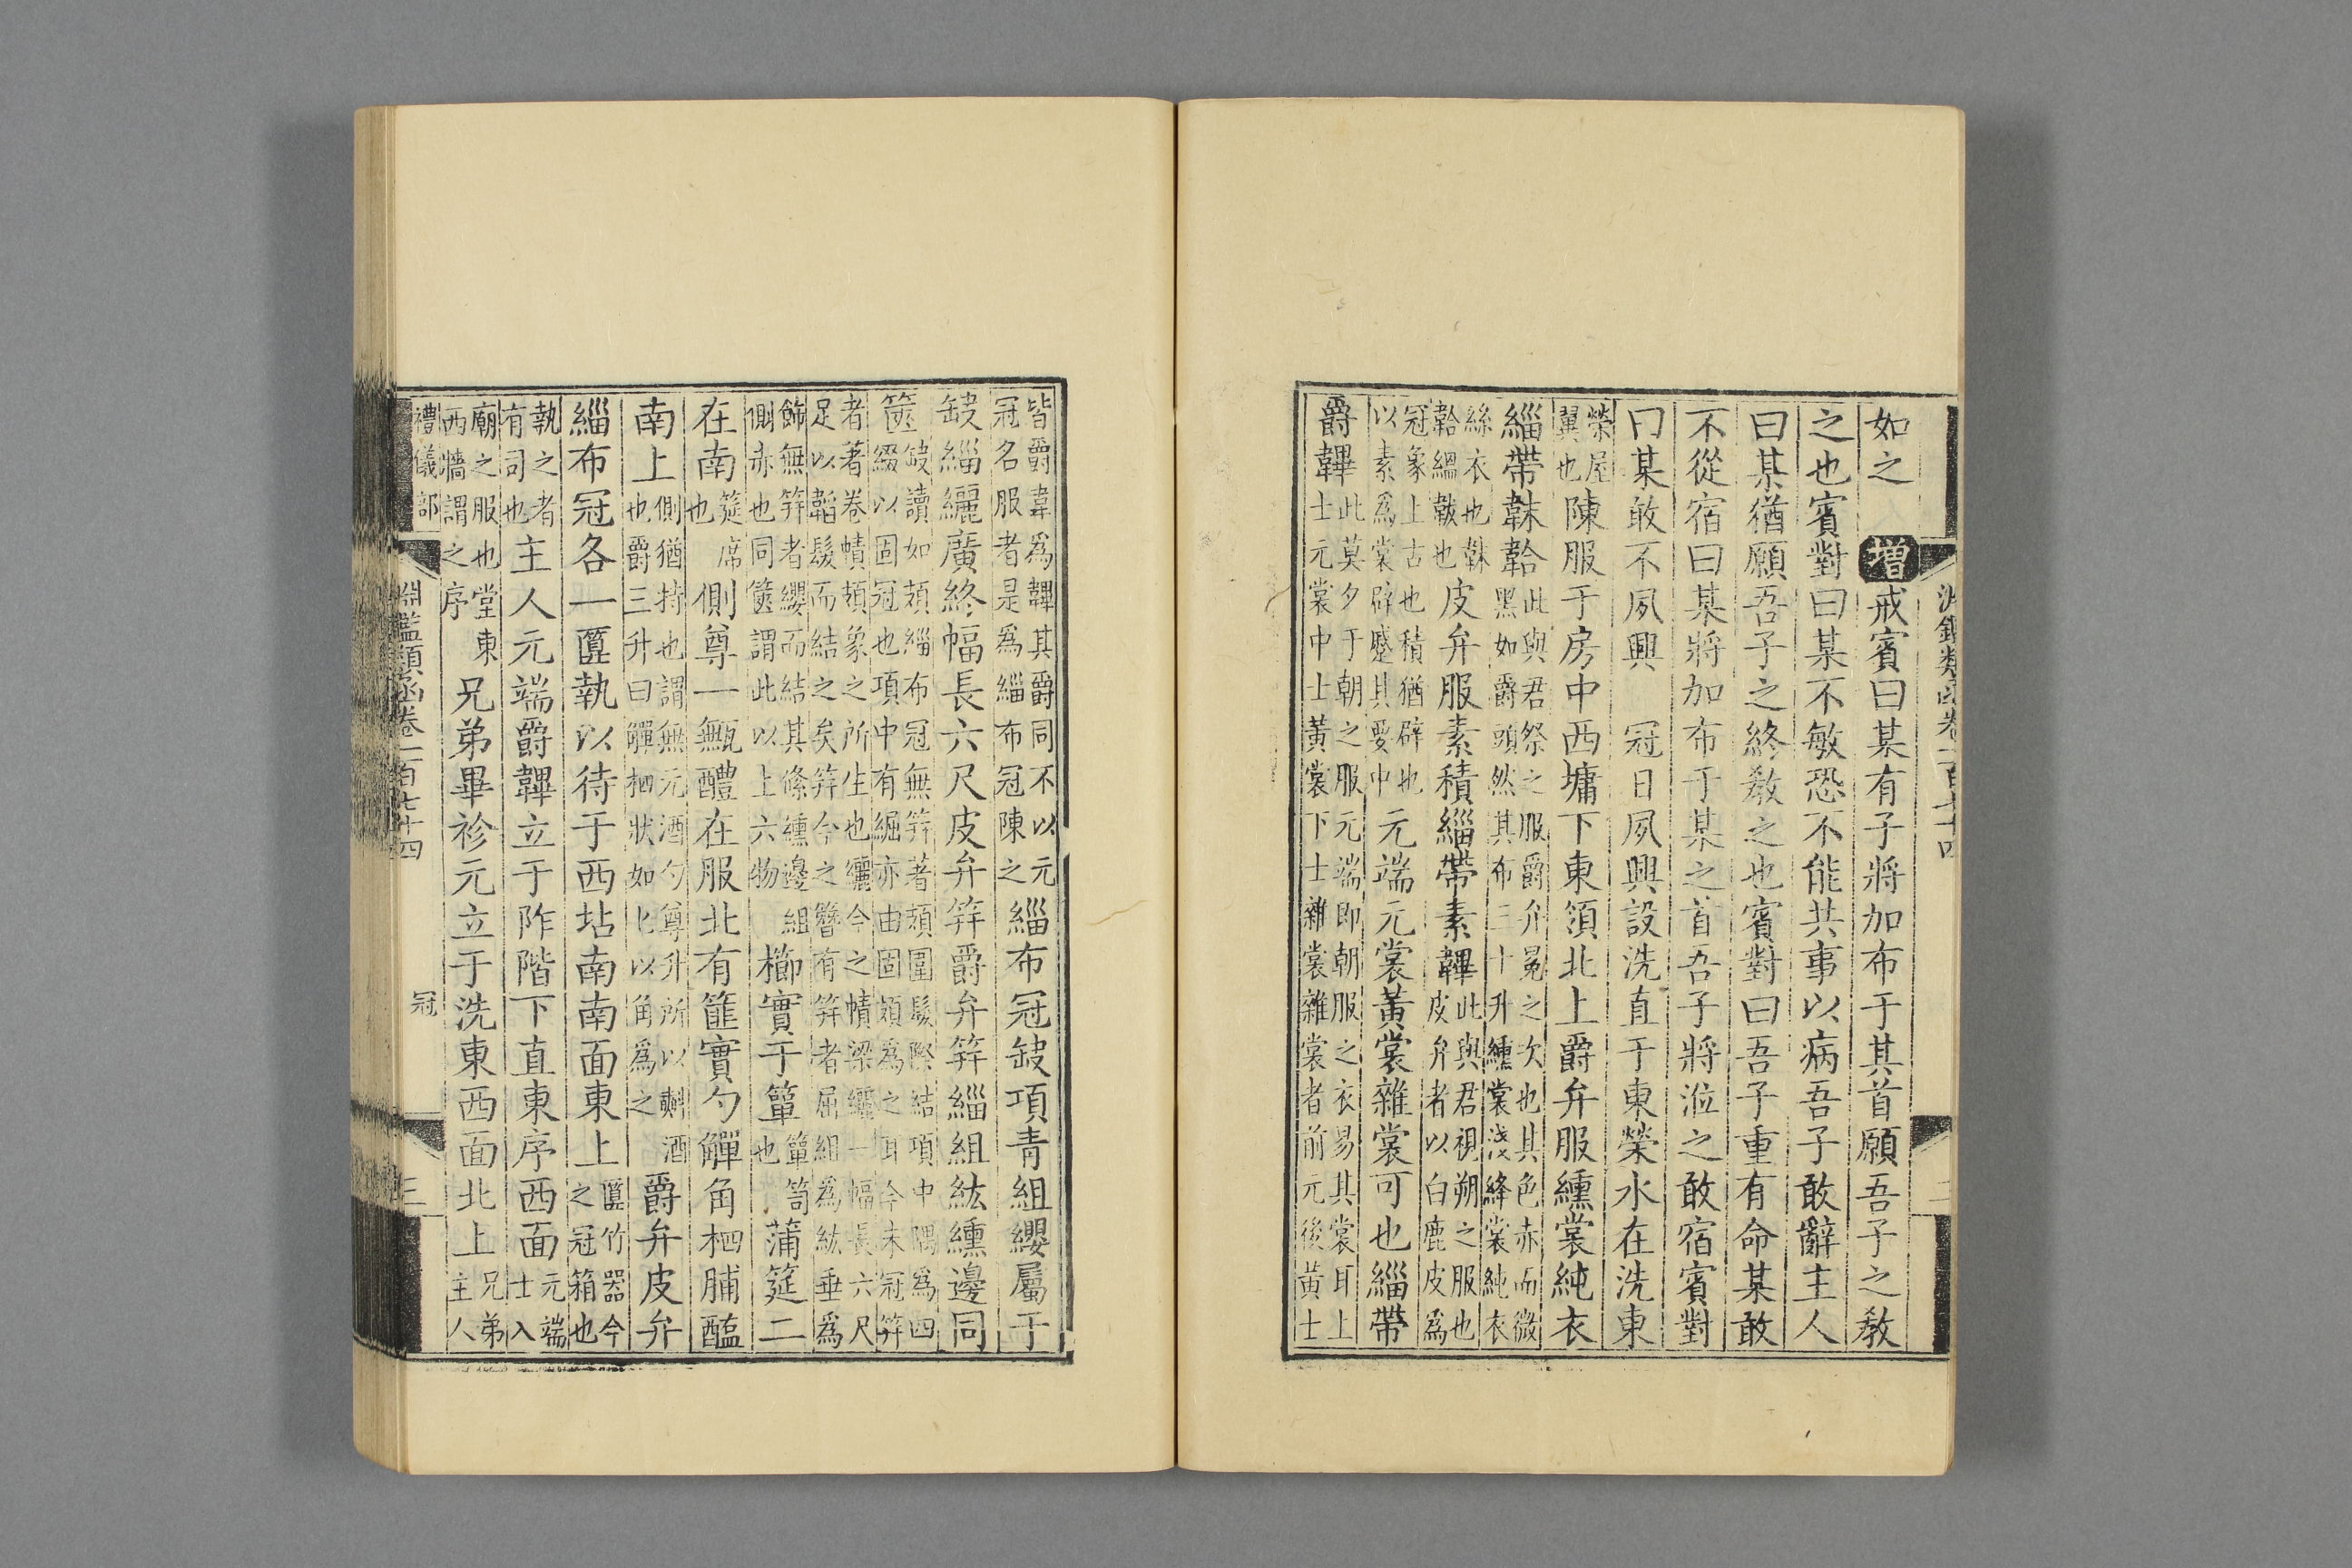 淵鑑類函卷一百七十四 二
如之 增 戒賓曰某有子將加布于其首願吾子之敎
之也賓對曰某不敏恐不能共事以病吾子敢辭主人
曰某猶願吾子之終敎之也賓對曰吾子重有命某敢
不從宿曰某將加布于某之首吾子將涖之敢宿賓對
曰某敢不夙興 冠日夙興設洗直于東榮水在洗東
榮屋翼也陳服于房中西墉下東領北上爵弁服纁裳純衣
緇帶韎韐此與君祭之服爵弁冕之次也其色赤而微黑如爵頭然其布三十升纁裳淺絳裳純衣
絲衣也韎韐縕韍也皮弁服素積緇帶素韠此與君視朔之服也皮弁者以白鹿皮爲
冠象上古也積猶辟也以素爲裳辟蹙其要中元端元裳黃裳雜裳可也緇帶
爵韠此莫夕于朝之服元端即朝服之衣易其裳耳上士元裳中士黃裳下士雜裳雜裳者前元後黃士
皆爵韋爲韠其爵同不以元冠名服者是爲緇布冠陳之緇布冠缺項青組纓屬于
缺緇纚廣終幅長六尺皮弁笄爵弁笄緇組紘纁邊同
篋缺讀如頍緇布冠無笄著頍圍髮際結項中隅爲四綴以固冠也項中有䋎亦由固頍爲之耳今未冠笄
者著卷幘頍象之所生也纚今之幘梁纚一幅長六尺足以韜髮而結之矣笄今之簪有笄者屈組爲紘垂爲
飾無笄者纓而結其絛纁邊組側赤也同篋謂此以上六物櫛實于簞簞笥也蒲筵二
在南筵席也側尊一甒醴在服北有篚實勺觶角柶脯醢
南上側猶持也謂無元酒勺尊升所以㪺酒也爵三升曰觶柶狀如匕以角爲之爵弁皮弁
緇布冠各一匴執以待于西坫南南面東上匴竹器今之冠箱也
執之者有司也主人元端爵韠立于阼階下直東序西面元端士入
廟之服也堂東西牆謂之序兄弟畢袗元立于洗東西面北上兄弟主人
禮儀部 淵鑑類函卷一百七十四 冠 三